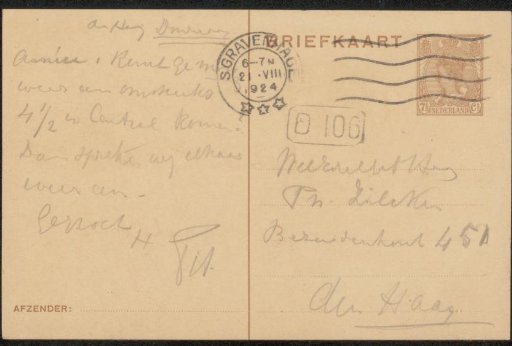 den Haag Donderdag
Amice! Kunt ge m
weer een omstreeks
4 1/2 in Central komen?
Dan spreken wij elkaar
weer een.
Gegroet
H
AFZENDER:
BRIEFKAART
'S GRAVENHAGE
6-7N
21.VIII
1924
7½ NEDERLAND ct
D 106
WelEdelGeb Heer
Ph. Zilcken
Bezuidenhout 451
den Haag